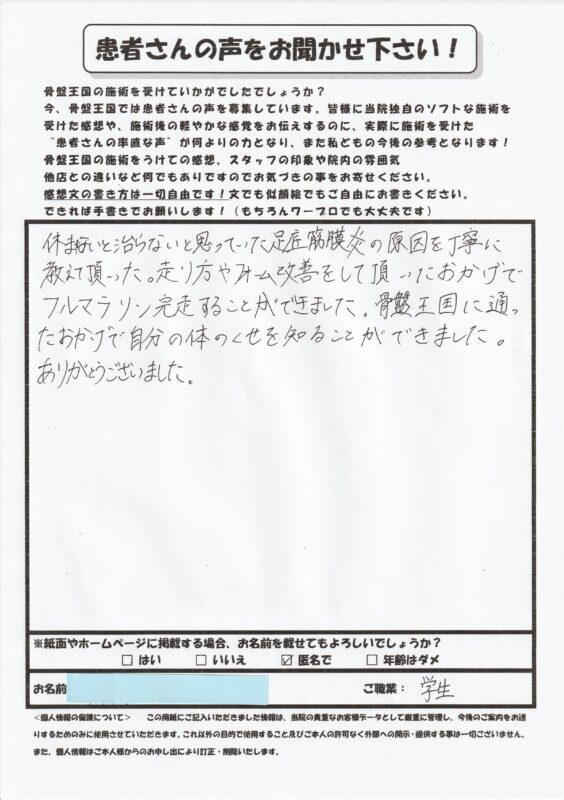 患者さんの声をお聞かせ下さい！
骨盤王国の施術を受けていかがでしたでしょうか？
今、骨盤王国では患者さんの声を募集しています。皆様に当院独自のソフトな施術を
受けた感想や、施術後の軽やかな感覚をお伝えするのに、実際に施術を受けた
"患者さんの率直な声"が何よりの力となり、また私どもの今後の参考となります！
骨盤王国の施術をうけての感想、スタッフの印象や院内の雰囲気
他店との違いなど何でもありですのでお気づきの事をお寄せください。
感想文の書き方は一切自由です！文でも似顔絵でもご自由にお書きください。
できれば手書きでお願いします！（もちろんワープロでも大丈夫です）
休まないと治らないと思っていた足底筋膜炎の原因を丁寧に
教えて頂った。走り方やフォーム改善をして頂いたおかげで
フルマラソン完走することができました。骨盤王国に通っ
たおかげで自分の体のくせを知ることができました。
ありがとうございました。
※紙面やホームページに掲載する場合、お名前を載せてもよろしいでしょうか？
□ はい □ いいえ ☑ 匿名で □ 年齢はダメ
お名前 ご職業： 学生
＜個人情報の保護について＞ この用紙にご記入いただきました情報は、当院の貴重なお客様データとして厳重に管理し、今後のご案内をお送
りするためのみに使用させていただきます。これ以外の目的で使用すること及びご本人の許可なく外部への開示・提供する事は一切ございません。
また、個人情報はご本人様からのお申し出により訂正・削除いたします。